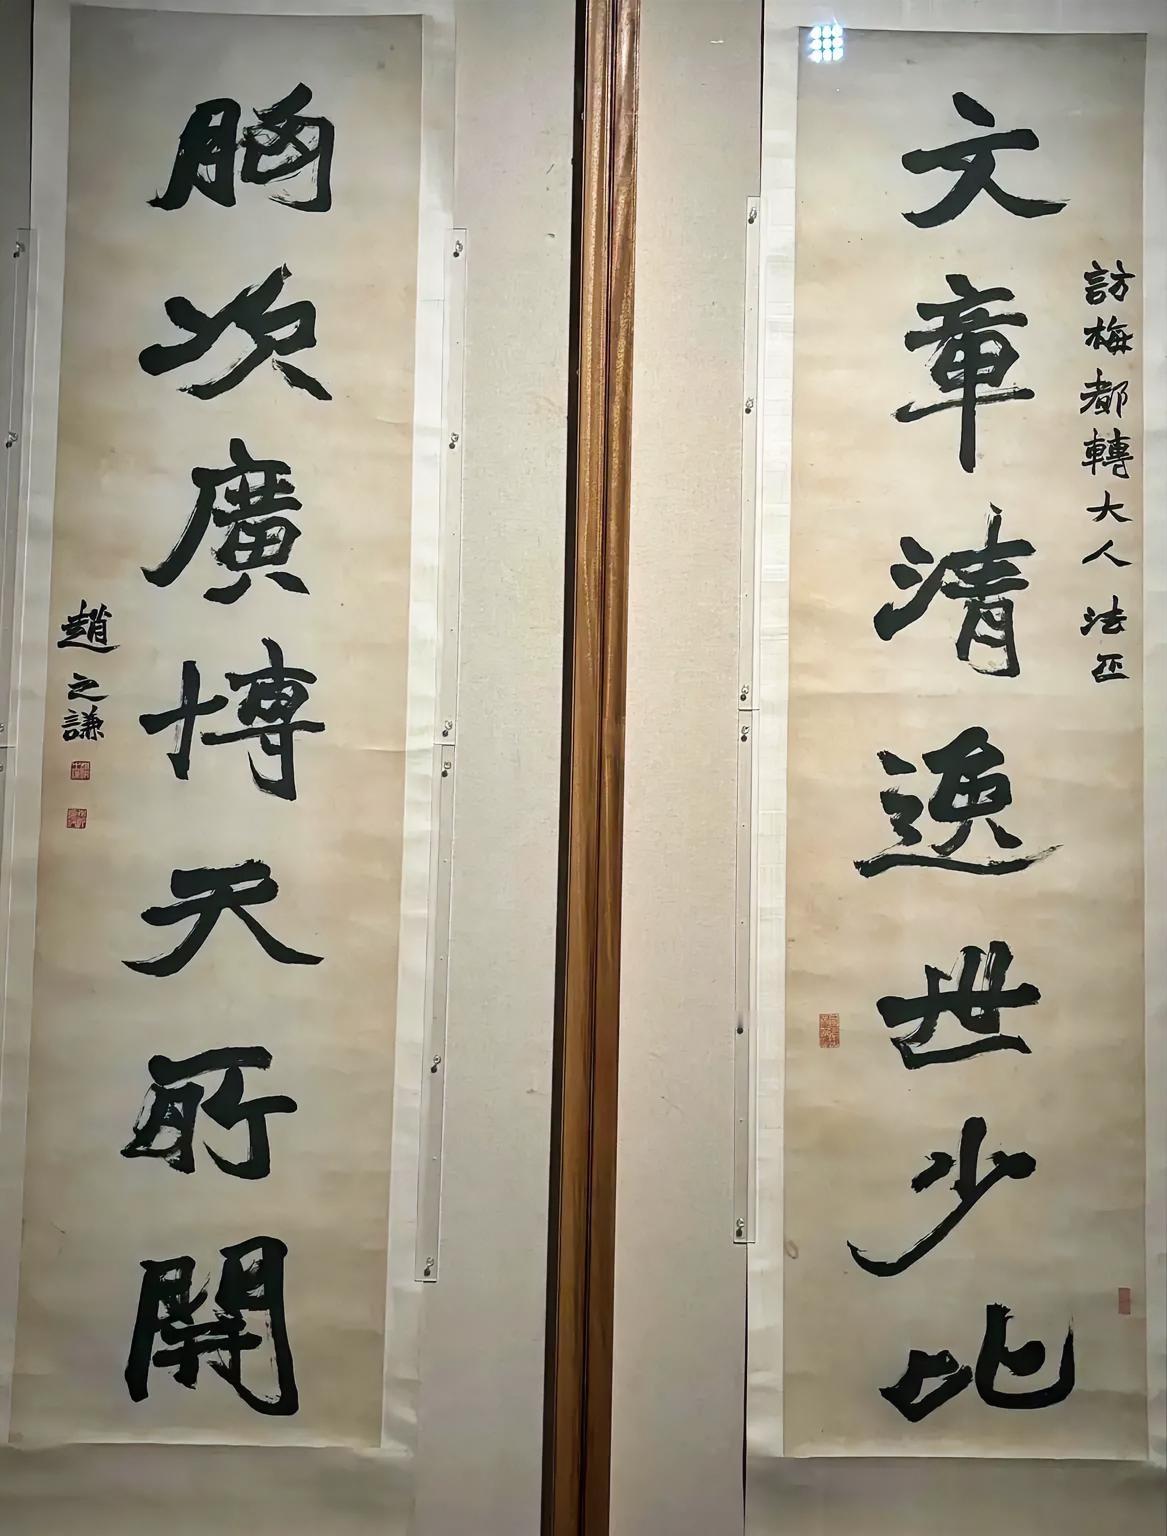 訪梅都轉大人法正
文章清逸世少比
胸次廣博天所開
趙之謙